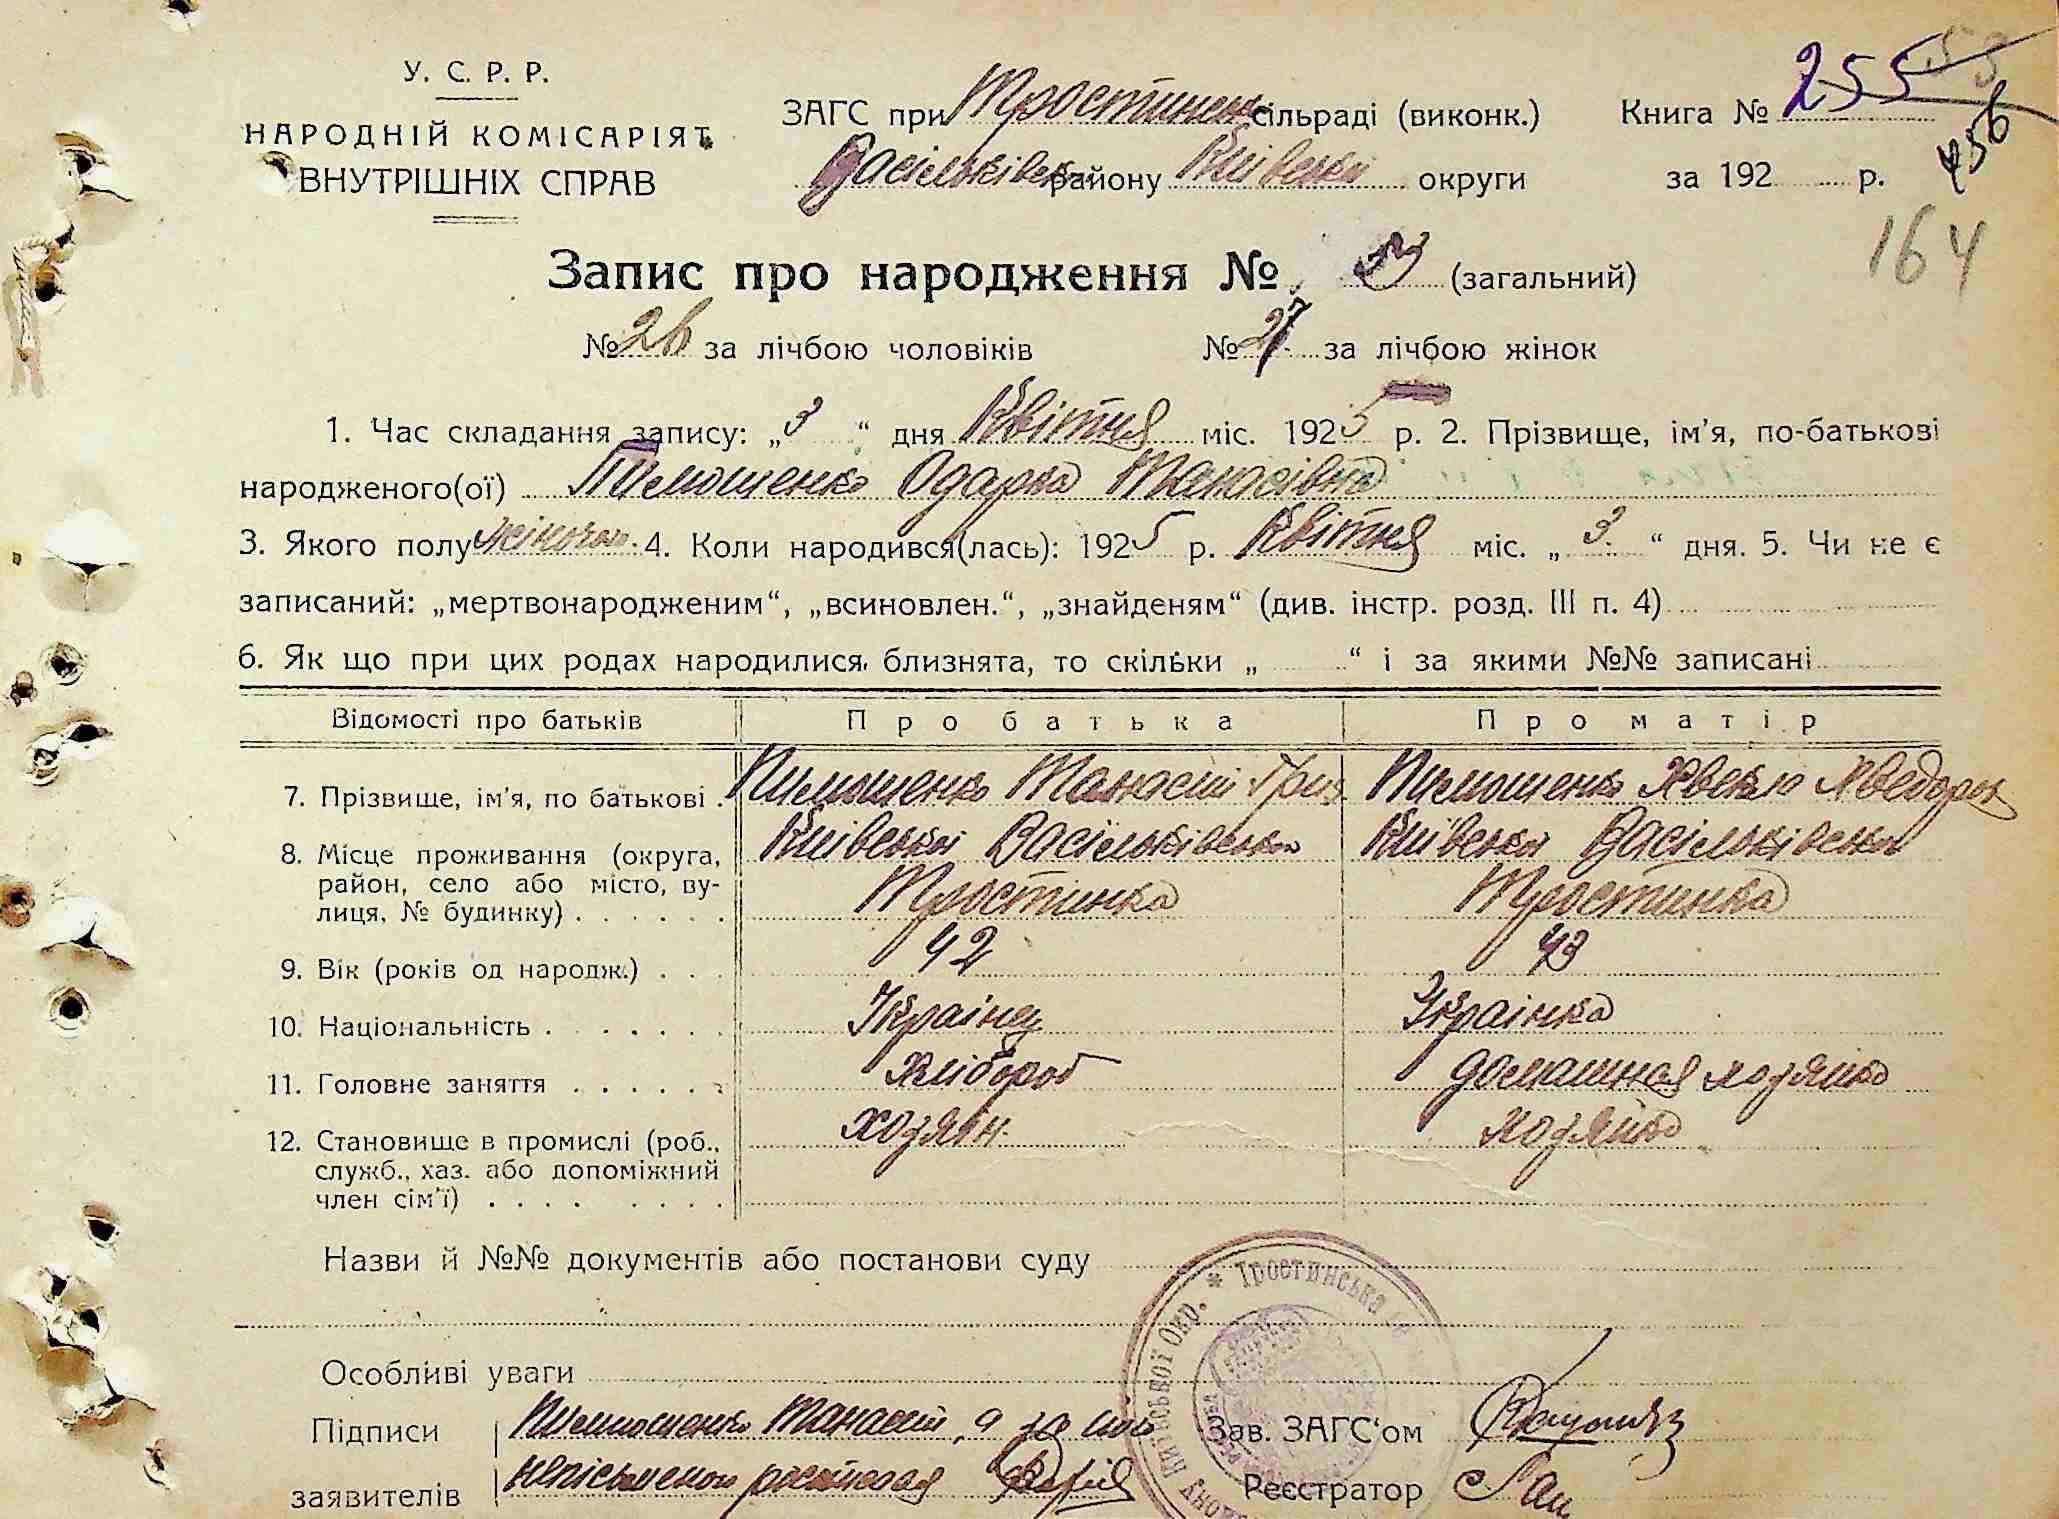 У. С. Р. Р.
НАРОДНІЙ КОМІСАРІЯТ
ВНУТРІШНІХ СПРАВ
ЗАГС при Тростинській сільраді (виконк.)
Васильківськ району Київської округи
Книга № 255
за 192 р.
156
164
Запис про народження № 53 (загальний)
№ 26 за лічбою чоловіків № 27 за лічбою жінок
1. Час складання запису: „3“ дня Квітня міс. 1925 р. 2. Прізвище, ім’я, по-батькові
народженого(ої) Тимошенко Одарка Танасівна
3. Якого полу жіночого 4. Коли народився(лась): 1925 р. Квітня міс. „3“ дня. 5. Чи не є
записаний: „мертвонародженим“, „всиновлен.“, „знайденям“ (див. інстр. розд. III п. 4)
6. Як що при цих родах народилися близнята, то скільки „ “ і за якими №№ записані
Відомості про батьків Про батька Про матір
7. Прізвище, ім’я, по батькові Тимошенко Танасій Григ Тимошенко Хвекла Хведоров
8. Місце проживання (округа, район, село або місто, вулиця, № будинку) Київської Васільківська Київської Васільківська
Тростинка Тростинка
9. Вік (років од народж.) 42 43
10. Національність Українец Українка
11. Головне заняття Хлібороб домашная хозяйка
12. Становище в промислі (роб., служб., хаз. або допоміжний член сім’ї) хозяін хозяйка
Назви й №№ документів або постанови суду
Особливі уваги
Підписи Тимошенко Танасій, а за
заявителів неписьменого росписався
Зав. ЗАГС‘ом
Реєстратор
* Тростинська
Київської Окр.